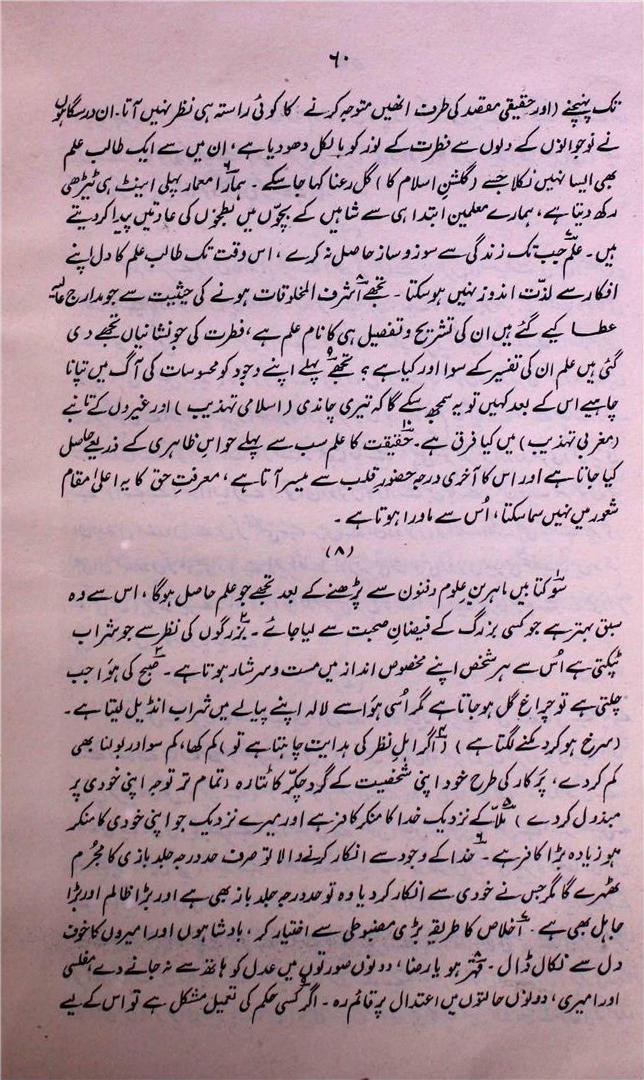 ۶۰
تک پہنچنے (اور حقیقی مقصد کی طرف انھیں متوجہ کرنے کا کوئی راستہ ہی نظر نہیں آتا۔ ان درسگاہوں
نے نوجوانوں کے دلوں سے فطرت کے نور کو بالکل دھو دیا ہے، ان میں سے ایک طالب علم
بھی ایسا نہیں نکلا جسے (گلشنِ اسلام کا) گل رعنا کہا جا سکے۔ ۶ ہمارا معمار پہلی اینٹ ہی ٹیڑھی
رکھ دیتا ہے، ہمارے معلمین ابتدا ہی سے شاہیں کے بچوں میں بطخوں کی عادتیں پیدا کر دیتے
ہیں۔ علم جب تک زندگی سے سوز و ساز حاصل نہ کرے، اس وقت تک طالب علم کا دل اپنے
افکار سے لذّت اندوز نہیں ہو سکتا۔ ۸ تجھے اشرف المخلوقات ہونے کی حیثیت سے جو مدارج عالیہ
عطا کیے گئے ہیں ان کی تشریح و تفصیل ہی کا نام علم ہے، فطرت کی جو نشانیاں تجھے دی
گئی ہیں علم ان کی تفسیر کے سوا اور کیا ہے؟ ۹ تجھے پہلے اپنے وجود کو محسوسات کی آگ میں تپانا
چاہیے اس کے بعد کہیں تو یہ سمجھ سکے گا کہ تیری چاندی (اسلامی تہذیب) اور غیروں کے تانبے
(مغربی تہذیب) میں کیا فرق ہے۔ ۱۰ حقیقت کا علم سب سے پہلے حواسِ ظاہری کے ذریعے حاصل
کیا جاتا ہے اور اس کا آخری درجہ حضورِ قلب سے میسر آتا ہے، معرفتِ حق کا یہ اعلیٰ مقام
شعور میں نہیں سما سکتا، اُس سے ماورا ہوتا ہے۔
(۸)
سو کتابیں ماہرینِ علوم و فنون سے پڑھنے کے بعد تجھے جو علم حاصل ہوگا، اس سے وہ
سبق بہتر ہے جو کسی بزرگ کے فیضانِ صحبت سے لیا جائے۔ ۲ بزرگوں کی نظر سے جو شراب
ٹپکتی ہے اُس سے ہر شخص اپنے مخصوص انداز میں مست و سرشار ہوتا ہے۔ ۳ صبح کی ہوا جب
چلتی ہے تو چراغ گل ہو جاتا ہے مگر اُسی ہوا سے لالہ اپنے پیالے میں شراب انڈیل لیتا ہے۔
(سرخ ہو کر دمکنے لگتا ہے) ۴ (اگر اہلِ نظر کی ہدایت چاہتا ہے تو) کم کھا، کم سو اور بولنا بھی
کم کر دے، پرکار کی طرح خود اپنی شخصیت کے گرد چکّر کاٹتا رہ (تمام تر توجہ اپنی خودی پر
مبذول کر دے) ۵ ملّا کے نزدیک خدا کا منکر کافر ہے اور میرے نزدیک جو اپنی خودی کا منکر
ہو زیادہ بڑا کافر ہے۔ ۶ خدا کے وجود سے انکار کرنے والا تو صرف حد درجہ جلد بازی کا مجرم
ٹھہرے گا مگر جس نے خودی سے انکار کر دیا وہ تو حد درجہ جلد باز بھی ہے اور بڑا ظالم اور بڑا
جاہل بھی ہے۔ ۷ اخلاص کا طریقہ بڑی مضبوطی سے اختیار کر، بادشاہوں اور امیروں کا خوف
دل سے نکال ڈال۔ ۸ قہر ہو یا رضا، دونوں صورتوں میں عدل کو ہاتھ سے نہ جانے دے، مفلسی
اور امیری، دونوں حالتوں میں اعتدال پر قائم رہ۔ ۹ اگر کسی حکم کی تعمیل مشکل ہے تو اس کے لیے